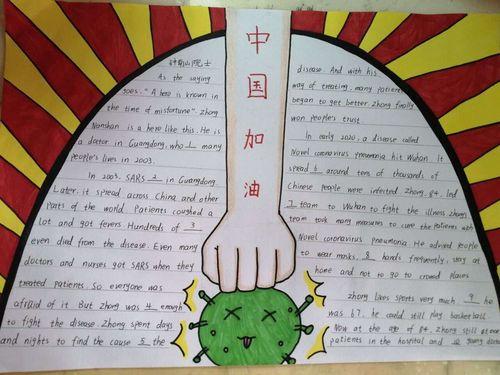 中国加油
钟南山院士
As the saying
goes. "A hero is known in
the time of misfortune". Zhong
Nanshan is a hero like this. He is
a doctor in Guangdong, who 1 many
people's lives in 2003.
In 2003, SARS 2 in Guangdong.
Later, it spread across China and other
parts of the world. Patients coughed a
lot and got fevers Hundreds of 3
even died from the disease. Even many
doctors and nurses got SARS when they
treated patients. So everyone was
afraid of it. But Zhong was 4 enough
to fight the disease. Zhong spent days
and nights to find the cause 5 the
disease. And with his
way of treating, many patients
began to get better. Zhong finally
won people's trust.
In early 2020, a disease called
Novel coronavirus pneumonia hit Wuhan. It
spread 6 around tens of thousands of
Chinese people were infected. Zhong, 84, led
7 team to Wuhan to fight the illness. Zhong's
team took many measures to cure the patients with
Novel coronavirus pneumonia. He advised people
to wear masks, 8 hands frequently, stay at
home and not to go to crowd places
Zhong likes sports very much. 9 he
was 67, he could still play basketball.
Now at the age of 84, Zhong still
patients in the hospital and 10 young